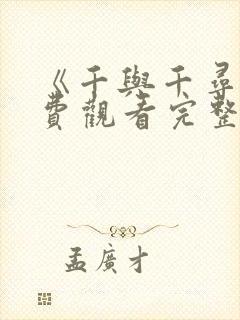 《千與千尋
費觀看完整
孟廣才